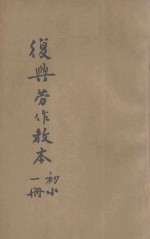 復興劳作教本
初小
一冊